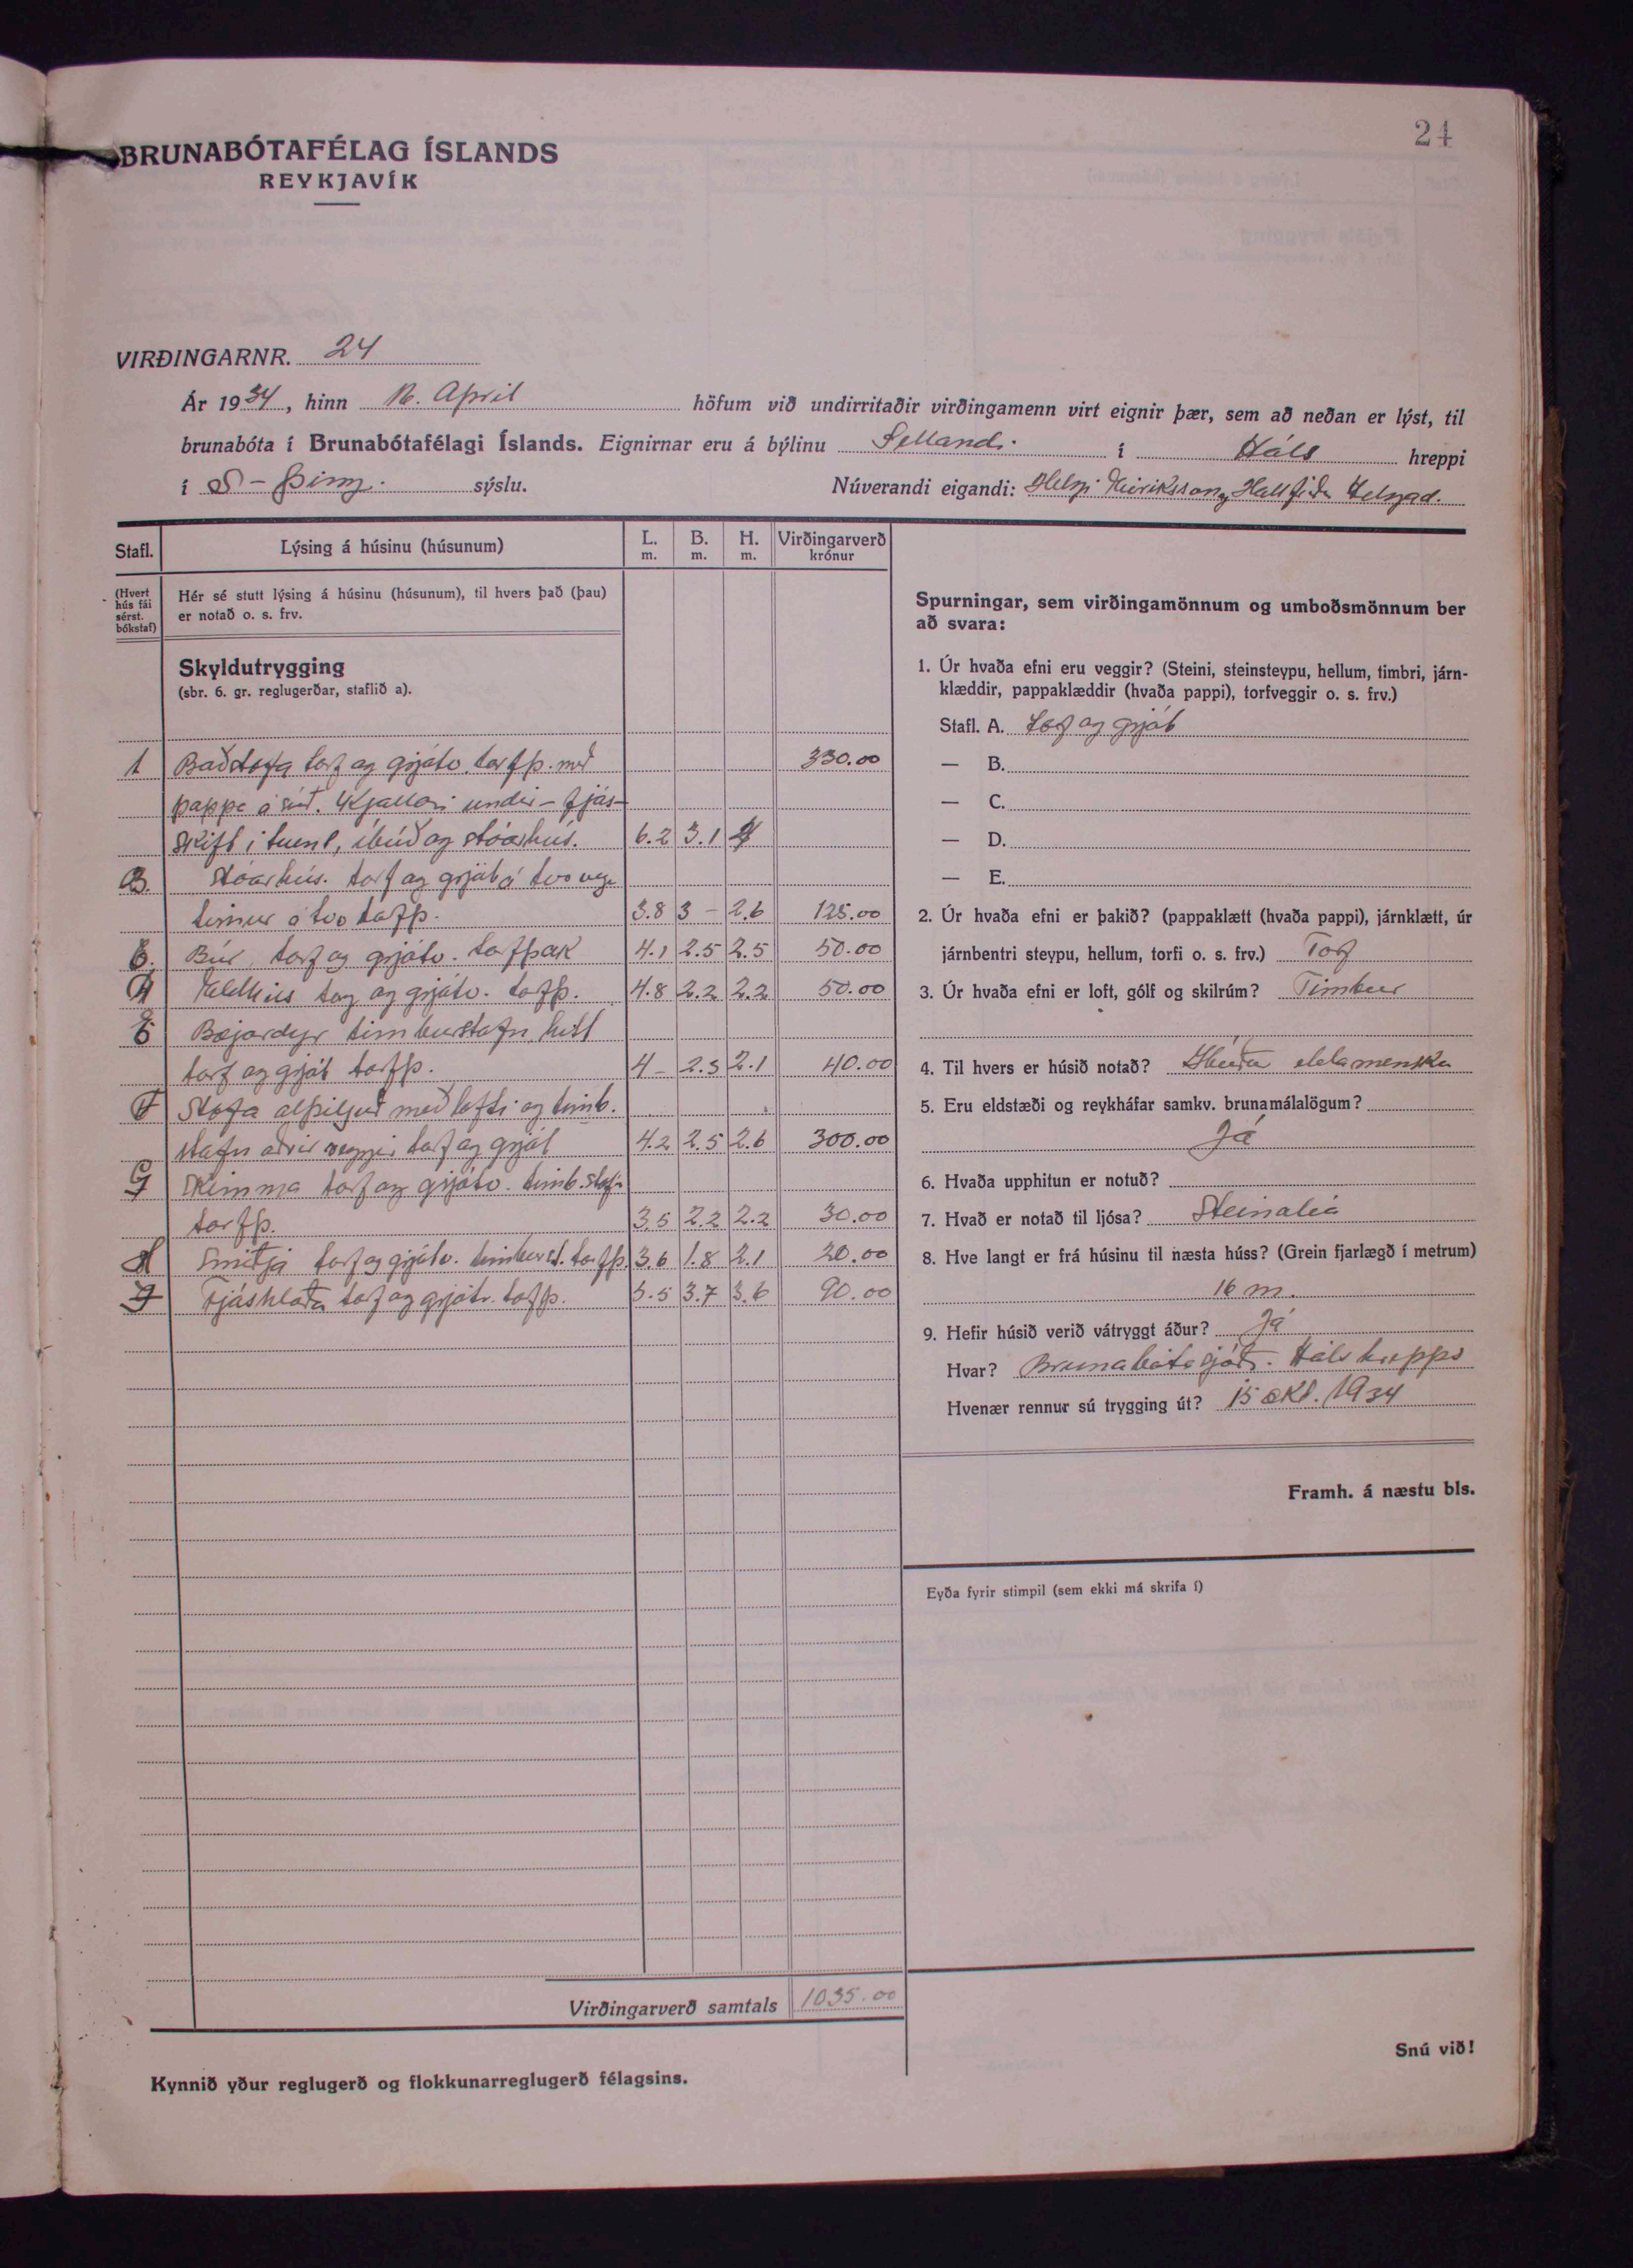 24
BRUNABÓTAFÉLAG ÍSLANDS
REYKJAVÍK
VIRÐINGARNR. 24
Ár 1934, hinn 16. April höfum við undirritaðir virðingamenn virt eignir þær, sem að neðan er lýst, til
brunabóta í Brunabótafélagi Íslands. Eignirnar eru á býlinu Sellandi. í Háls hreppi
í S-Þing. sýslu. Núverandi eigandi: Helgi Eiríksson, Helgad.
Stafl. Lýsing á húsinu (húsunum) L. m. B. m. H. m. Virðingarverð krónur
(Hvert hús fái sérst. bókstaf)
Hér sé stutt lýsing á húsinu (húsunum), til hvers það (þau)
er notað o. s. frv.
Skyldutrygging
(sbr. 6. gr. reglugerðar, staflið a).
Baðstofa torf og grjótv. torfþ. með 330.00
pappa á súð. Kjallari undir - fjós-
skift í tvent, íbúð og stóarhús. 6.2 3.1 4
B. Stóarhús. torf og grjót á tvo vegu
timur á tvo torfþ. 3.8 3 - 2.6 125.00
C. Búr, torf og grjótv. torfþak 4.1 2.5 2.5 50.00
Eldhús torf og grjótv. torfþ. 4.8 2.2 2.2 50.00
E Bæjardyr timburstafn hitt
torf og grjót torfþ. 4 - 2.3 2.1 40.00
F Stofa alþiljuð með lofti og timb.
stafn aðrir veggir torf og grjót 4.2 2.5 2.6 300.00
G Skemma torf og grjótv. timb. stafn
torfþ. 3.5 2.2 2.2 30.00
H Smiðja torf og grjótv. timburst. torfþ. 3.6 1.8 2.1 20.00
Fjóshlaða torf og grjótv. torfþ. 5.5 3.7 3.6 90.00
Virðingarverð samtals 1035.00
Kynnið yður reglugerð og flokkunarreglugerð félagsins.
Spurningar, sem virðingamönnum og umboðsmönnum ber
að svara:
1. Úr hvaða efni eru veggir? (Steini, steinsteypu, hellum, timbri, járn-
klæddir, pappaklæddir (hvaða pappi), torfveggir o. s. frv.)
Stafl. A. Torf og grjót
— B.
— C.
— D.
— E.
2. Úr hvaða efni er þakið? (pappaklætt (hvaða pappi), járnklætt, úr
járnbentri steypu, hellum, torfi o. s. frv.) Torf
3. Úr hvaða efni er loft, gólf og skilrúm? Timbur
4. Til hvers er húsið notað? Íbúða eldamensku
5. Eru eldstæði og reykháfar samkv. brunamálalögum?
Já
6. Hvaða upphitun er notuð?
7. Hvað er notað til ljósa? Steinolía
8. Hve langt er frá húsinu til næsta húss? (Grein fjarlægð í metrum)
16 m.
9. Hefir húsið verið vátryggt áður? Já
Hvar? Brunabótasjóði. Hálshrepps
Hvenær rennur sú trygging út? 15 okt. 1934
Framh. á næstu bls.
Eyða fyrir stimpil (sem ekki má skrifa í)
Snú við!